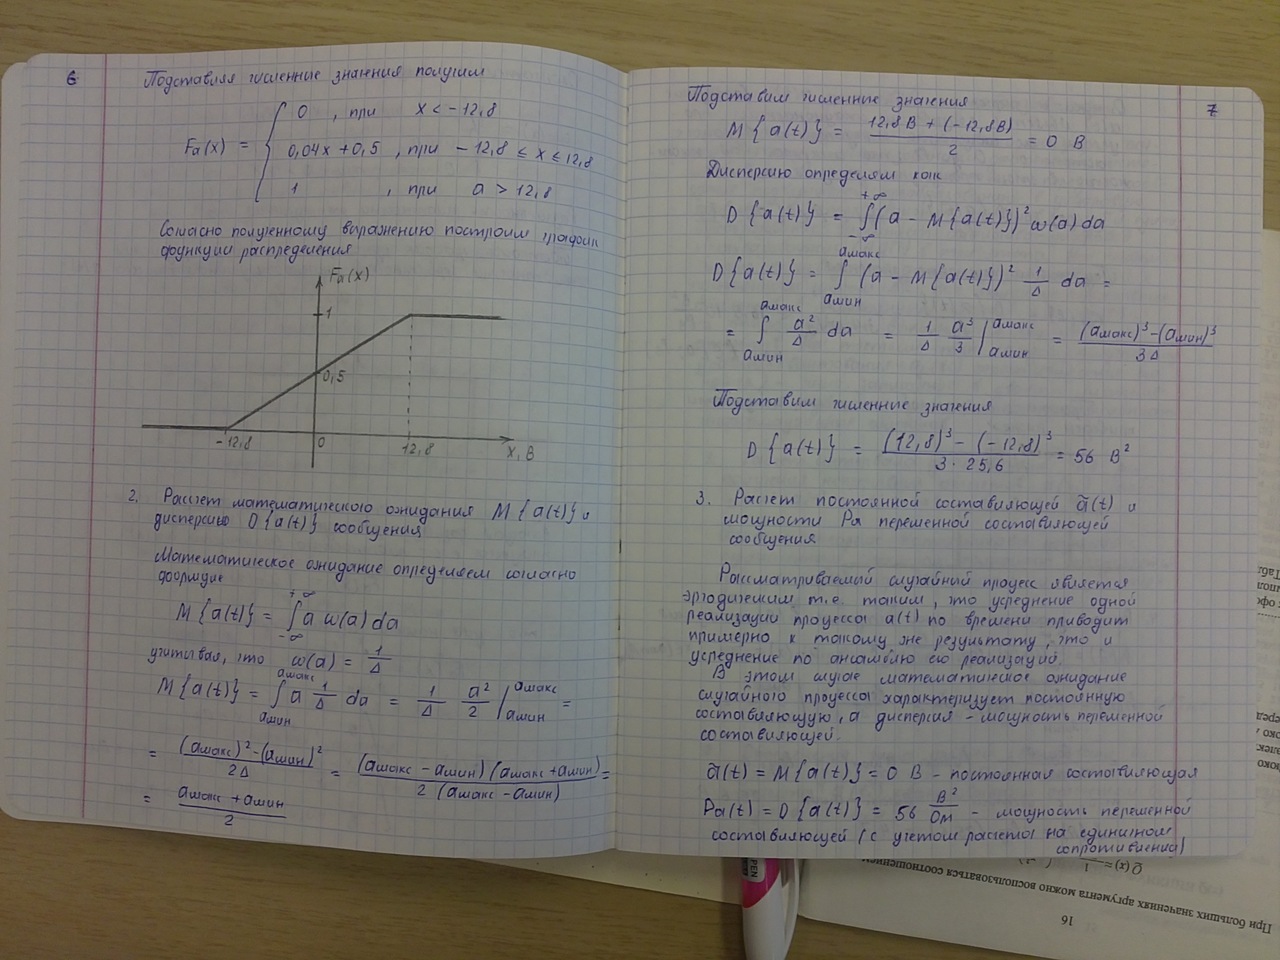 6
Подставляя численные значения получим
Fa(x) = { 0 , при x < -12,8
0,04x + 0,5 , при -12,8 ≤ x ≤ 12,8
1 , при a > 12,8
Согласно полученному выражению построим график
функции распределения
Fa(x)
1
0,5
-12,8 0 12,8 x, В
2. Рассчет математического ожидания M{a(t)} и
дисперсию D{a(t)} сообщения
Математическое ожидание определяем согласно
формуле
M{a(t)} = ∫_{-∞}^{+∞} a ω(a) da
учитывая, что ω(a) = 1/Δ
M{a(t)} = ∫_{aмин}^{aмакс} a 1/Δ da = 1/Δ a²/2 |_{aмин}^{aмакс} =
= ((aмакс)² - (aмин)²)/2Δ = (aмакс - aмин)(aмакс + aмин)/2(aмакс - aмин) =
= (aмакс + aмин)/2
7
Подставим численные значения
M{a(t)} = (12,8В + (-12,8В))/2 = 0 В
Дисперсию определяем как
D{a(t)} = ∫_{-∞}^{+∞} (a - M{a(t)})² ω(a) da
D{a(t)} = ∫_{aмин}^{aмакс} (a - M{a(t)})² 1/Δ da =
= ∫_{aмин}^{aмакс} a²/Δ da = 1/Δ a³/3 |_{aмин}^{aмакс} = ((aмакс)³ - (aмин)³)/3Δ
Подставим численные значения
D{a(t)} = ((12,8)³ - (-12,8)³)/(3·25,6) = 56 В²
3. Расчет постоянной составляющей ã(t) и
мощности Pa переменной составляющей
сообщения
Рассматриваемый случайный процесс является
эргодическим т.е. таким, что усреднение одной
реализации процесса a(t) по времени приводит
примерно к такому же результату, что и
усреднение по ансамблю его реализаций.
В этом случае математическое ожидание
случайного процесса характеризует постоянную
составляющую, а дисперсия - мощность переменной
составляющей.
ã(t) = M{a(t)} = 0 В - постоянная составляющая
Pa(t) = D{a(t)} = 56 В²/Ом - мощность переменной
составляющей (с учетом расчета на единичном
сопротивлении)
При больших значениях аргумента можно воспользоваться соотношением
16